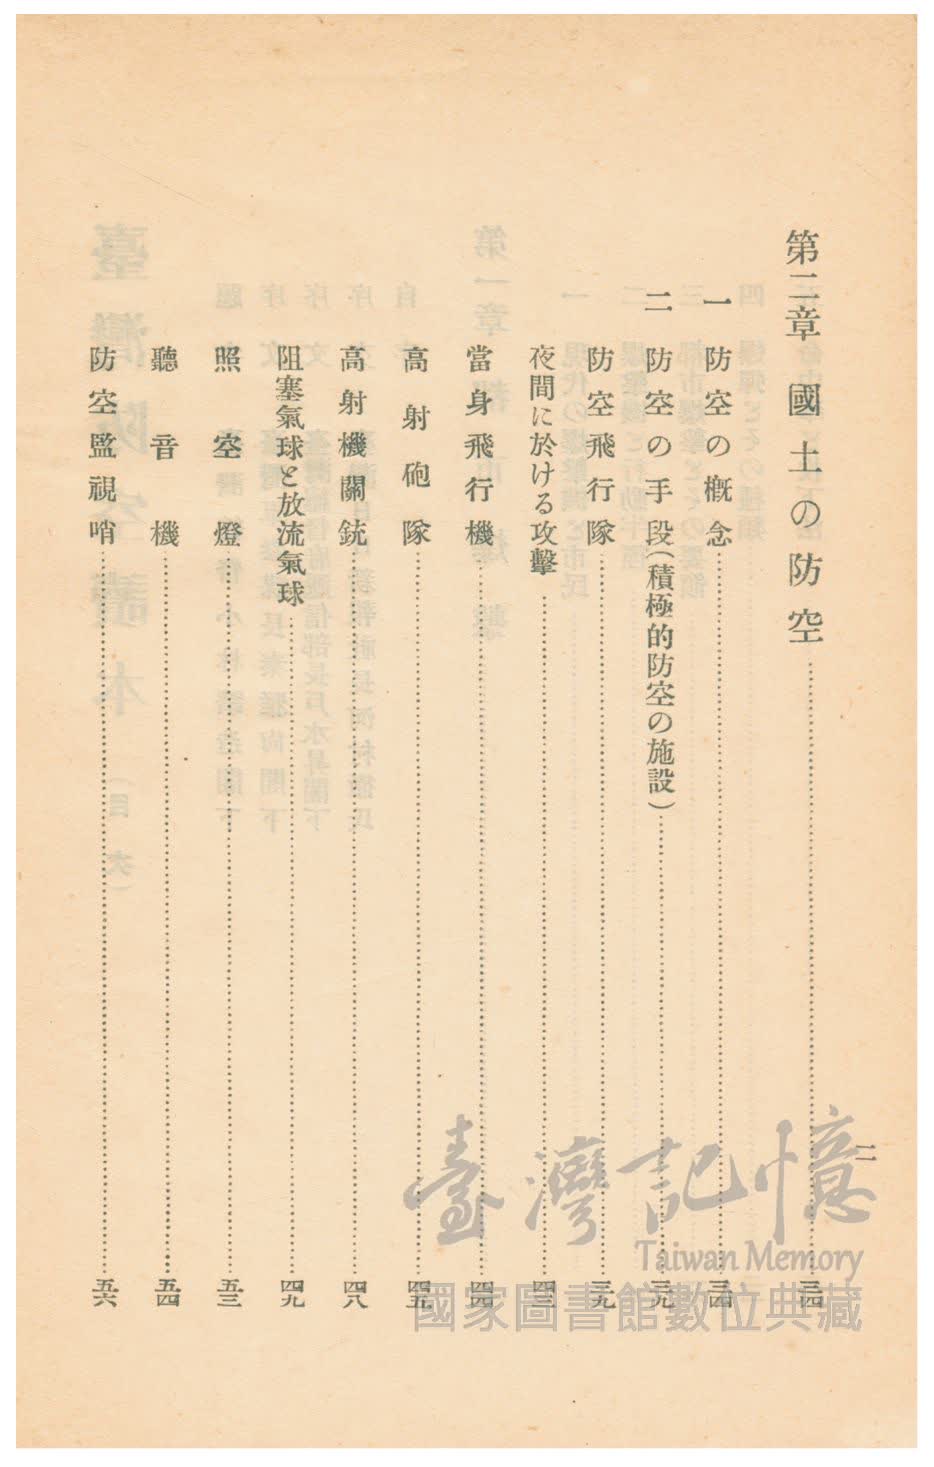 二
第二章 國土の防空 三四
一 防空の概念 三四
二 防空の手段(積極的防空の施設) 三九
防空飛行隊 三九
夜間に於ける攻擊 四三
當身飛行機 四四
高射砲隊 四五
高射機關銃 四八
阻塞氣球と放流氣球 四九
照空燈 五三
聽音機 五四
防空監視哨 五六
臺灣記憶
Taiwan Memory
國家圖書館數位典藏